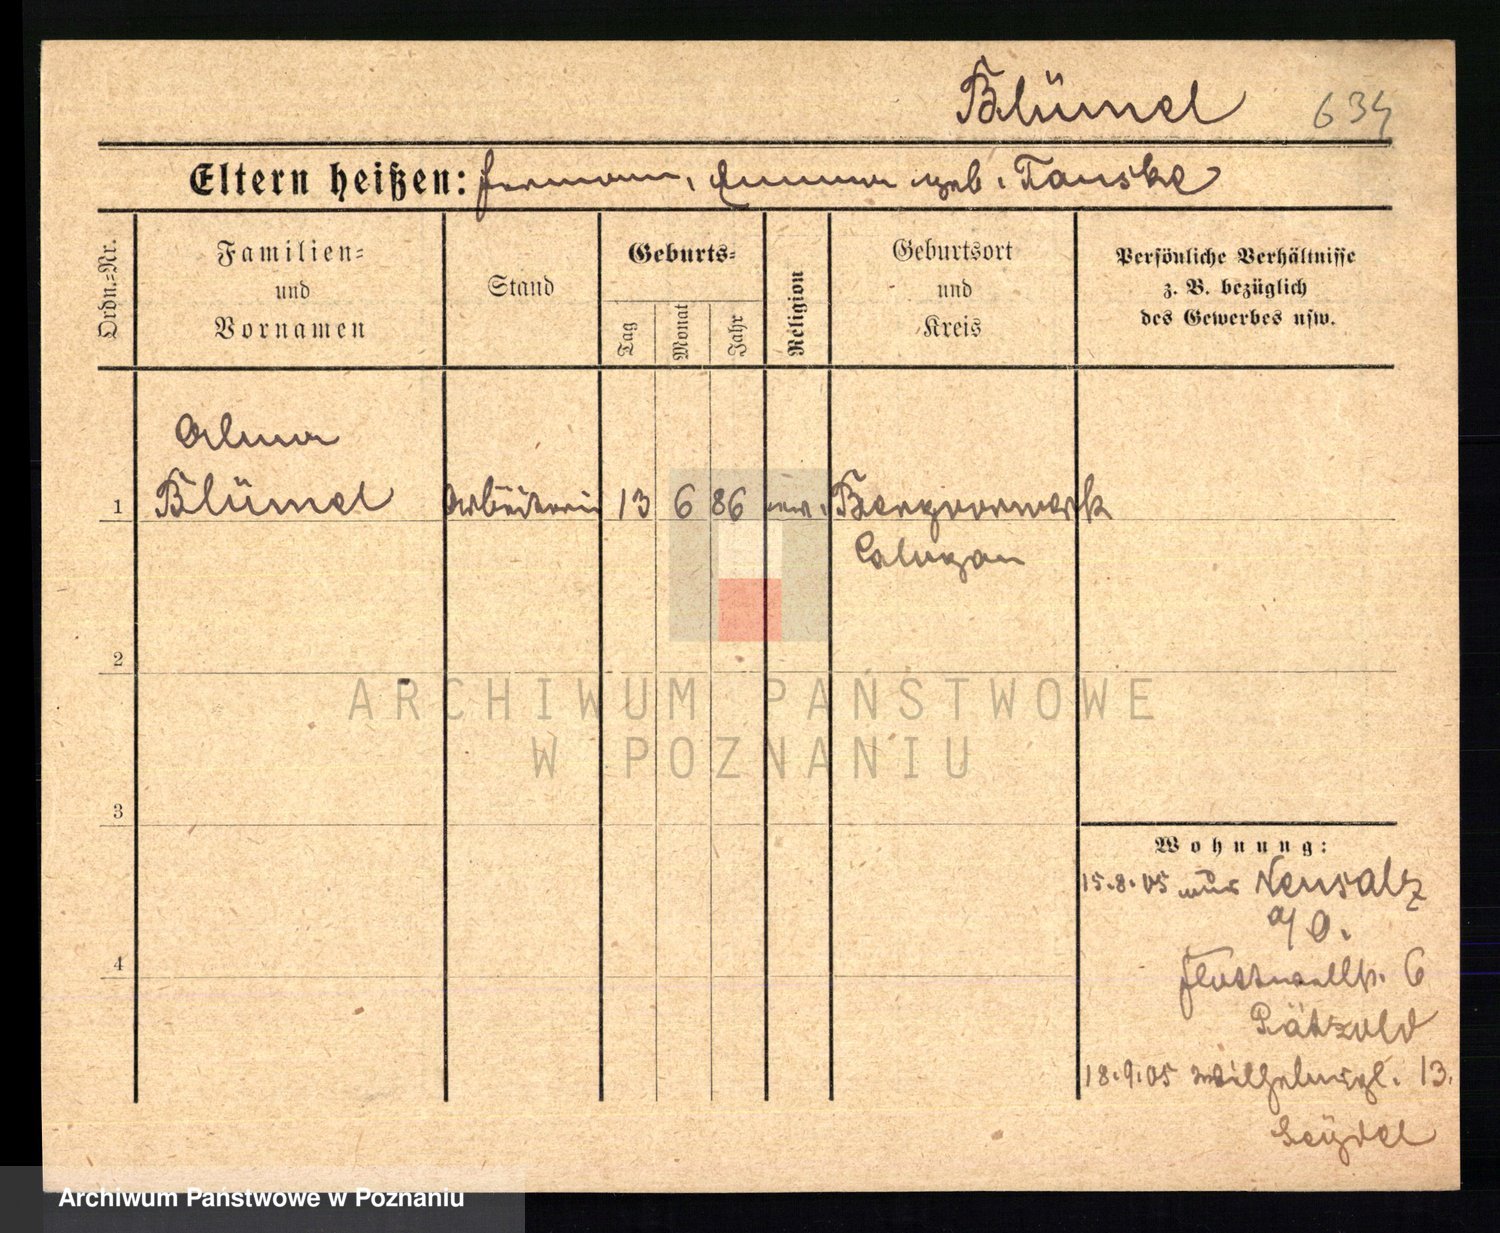 Blümel 634
Eltern heißen: Hermann, Emma geb. Tauske
Ordn.=Nr.
Familien=
und
Vornamen
Stand
Geburts=
Tag
Monat
Jahr
Religion
Geburtsort
und
Kreis
Persönliche Verhältnisse
z. B. bezüglich
des Gewerbes usw.
Alma
1 Blümel Arbeiterin 13 6 86 ev. Bergvorwerk
2
3
4
Wohnung:
15.8.05 aus Neusalz
a/O.
Flottwellstr. 6
Pätzold
18.9.05 13.
Seydel
ARCHIWUM PAŃSTWOWE
W POZNANIU
Archiwum Państwowe w Poznaniu